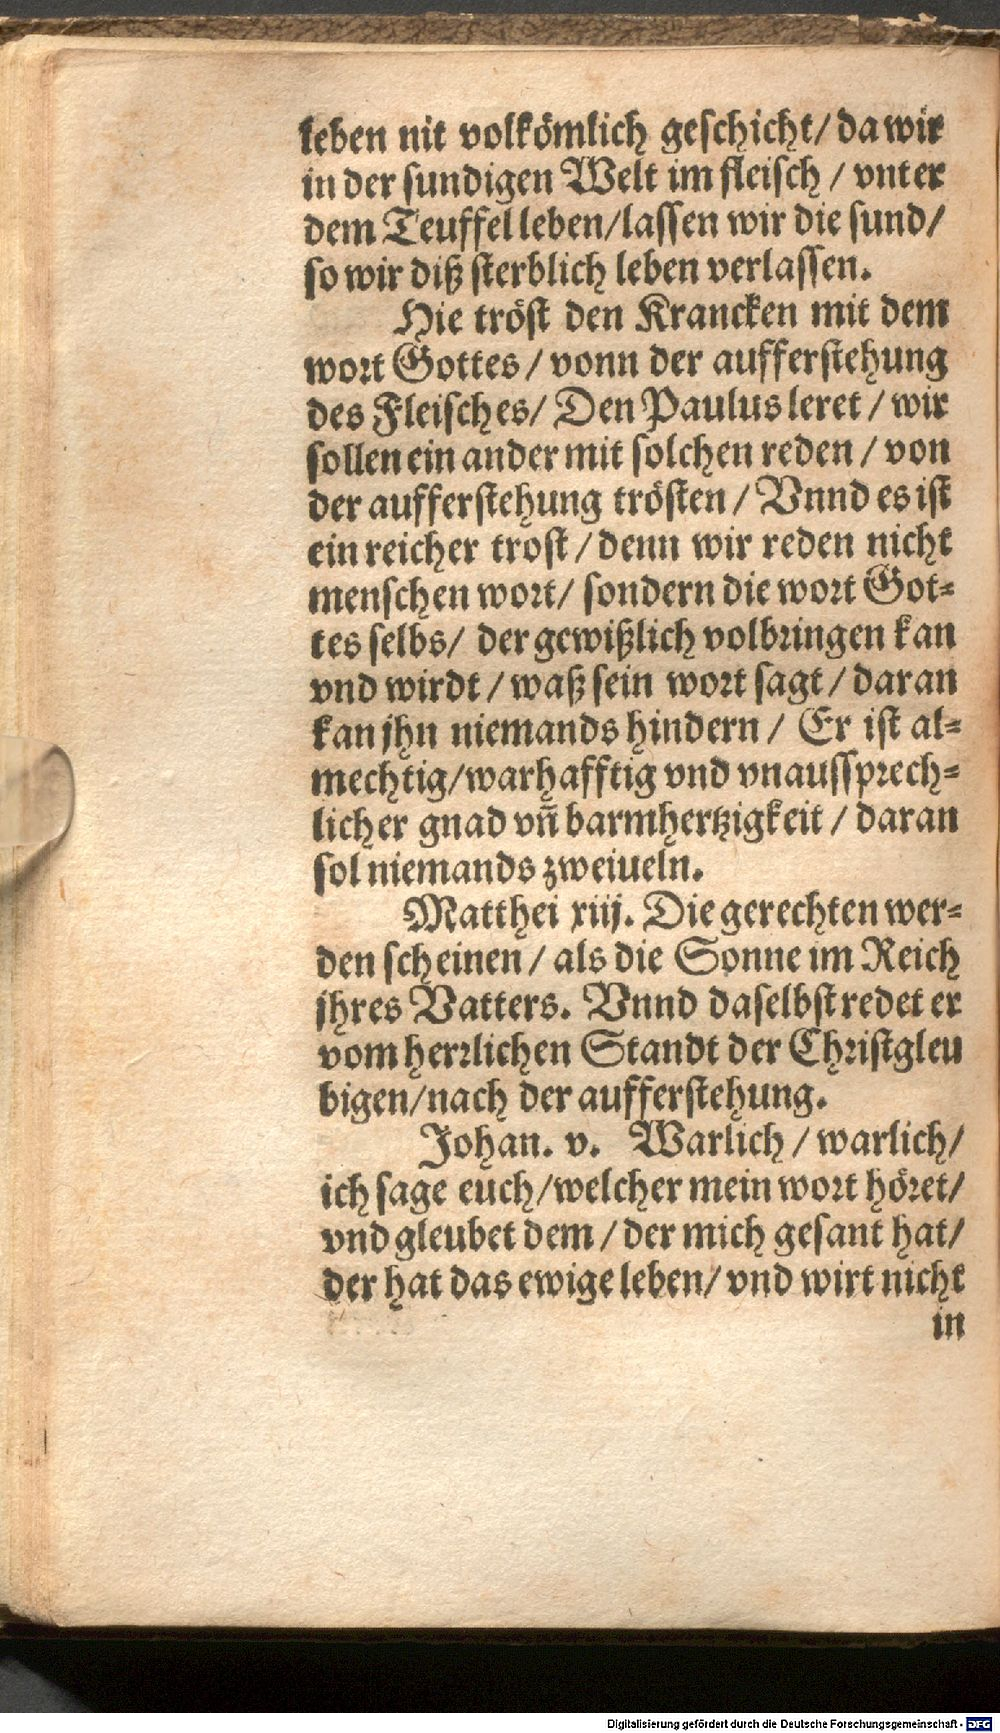 leben nit volkömlich geschicht/ da wir
in der sundigen Welt im fleisch / vnter
dem Teuffel leben/lassen wir die sund/
so wir diß sterblich leben verlassen.
Hie tröst den Krancken mit dem
wort Gottes / vonn der aufferstehung
des Fleisches/ Den Paulus leret / wir
sollen ein ander mit solchen reden / von
der aufferstehung trösten / Vnnd es ist
ein reicher trost / denn wir reden nicht
menschen wort/ sondern die wort Got=
tes selbs/ der gewißlich volbringen kan
vnd wirdt / waß sein wort sagt / daran
kan jhn niemands hindern / Er ist al=
mechtig/warhafftig vnd vnaussprech=
licher gnad vñ barmhertzigkeit / daran
sol niemands zweiueln.
Matthei xiij. Die gerechten wer=
den scheinen / als die Sonne im Reich
jhres Vatters. Vnnd daselbst redet er
vom herrlichen Standt der Christgleu
bigen/nach der aufferstehung.
Johan. v. Warlich / warlich/
ich sage euch/welcher mein wort höret/
vnd gleubet dem / der mich gesant hat/
der hat das ewige leben/ vnd wirt nicht
in
Digitalisierung gefördert durch die Deutsche Forschungsgemeinschaft - DFG